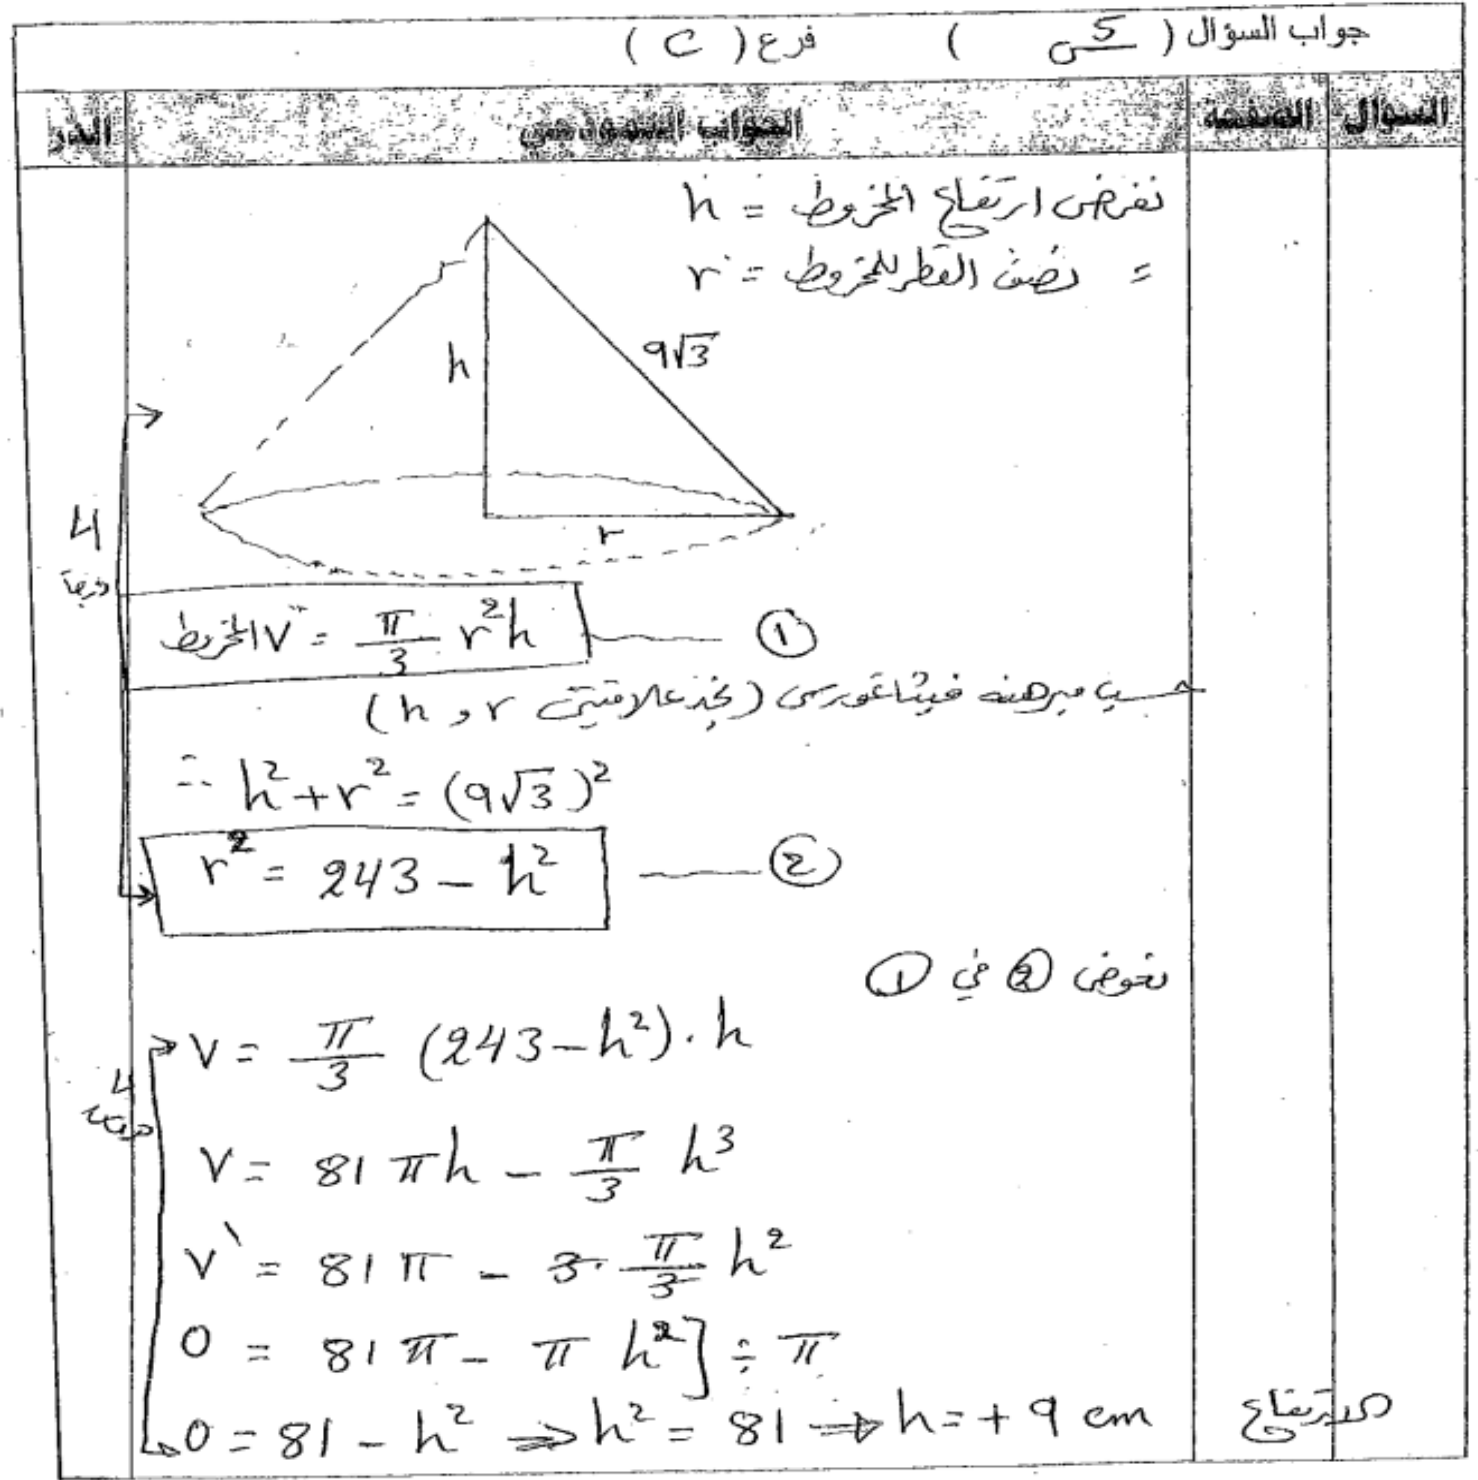 جواب السؤال ( س5 ) فرع ( C )
السؤال الصفحة الجواب النموذجي الدر
نفرض ارتفاع المخروط = h
= نصف القطر للمخروط = r
h
9√3
r
4
درجات
V المخروط = π/3 r²h —— ①
حسب مبرهنة فيثاغورس (نجد علاقة بين r و h)
∴ h² + r² = (9√3)²
r² = 243 - h² —— ②
نعوض ② في ①
V = π/3 (243 - h²) . h
4
درجات
V = 81 πh - π/3 h³
V' = 81 π - 3 . π/3 h²
0 = 81 π - π h² ] ÷ π
0 = 81 - h² ⇒ h² = 81 ⇒ h = + 9 cm الارتفاع